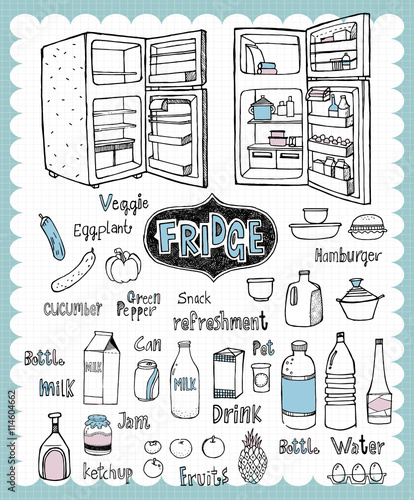 Veggie
Eggplant
FRIDGE
Hamburger
cucumber
Green
Pepper
Snack
refreshment
Bottle
milk
MILK
Can
MILK
Pet
Drink
Jam
ketchup
Fruits
Bottle
Water
Adobe Stock | #114604662